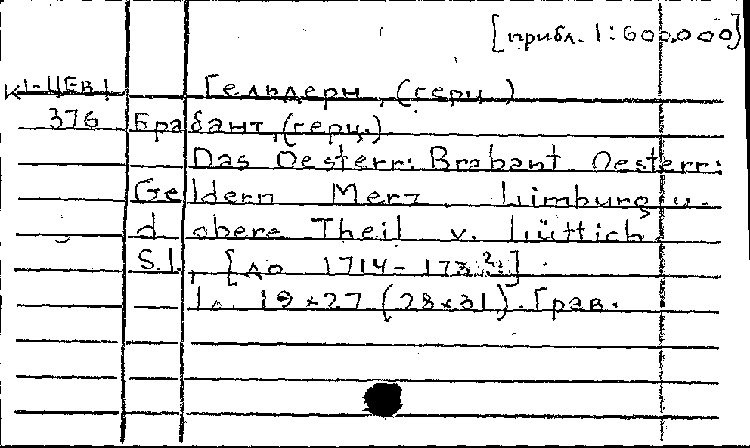 [прибл. 1:600.000]
К1-ЦЕВ1 Гельдерн, (герц.)
376 Брабант, (герц.)
Das Oesterr: Brabant Oesterr:
Geldern Merz Limburg u.
d obere Theil v. Lüttich
S.l., [до 1714-
1л. 19x27 (28x31). Грав.